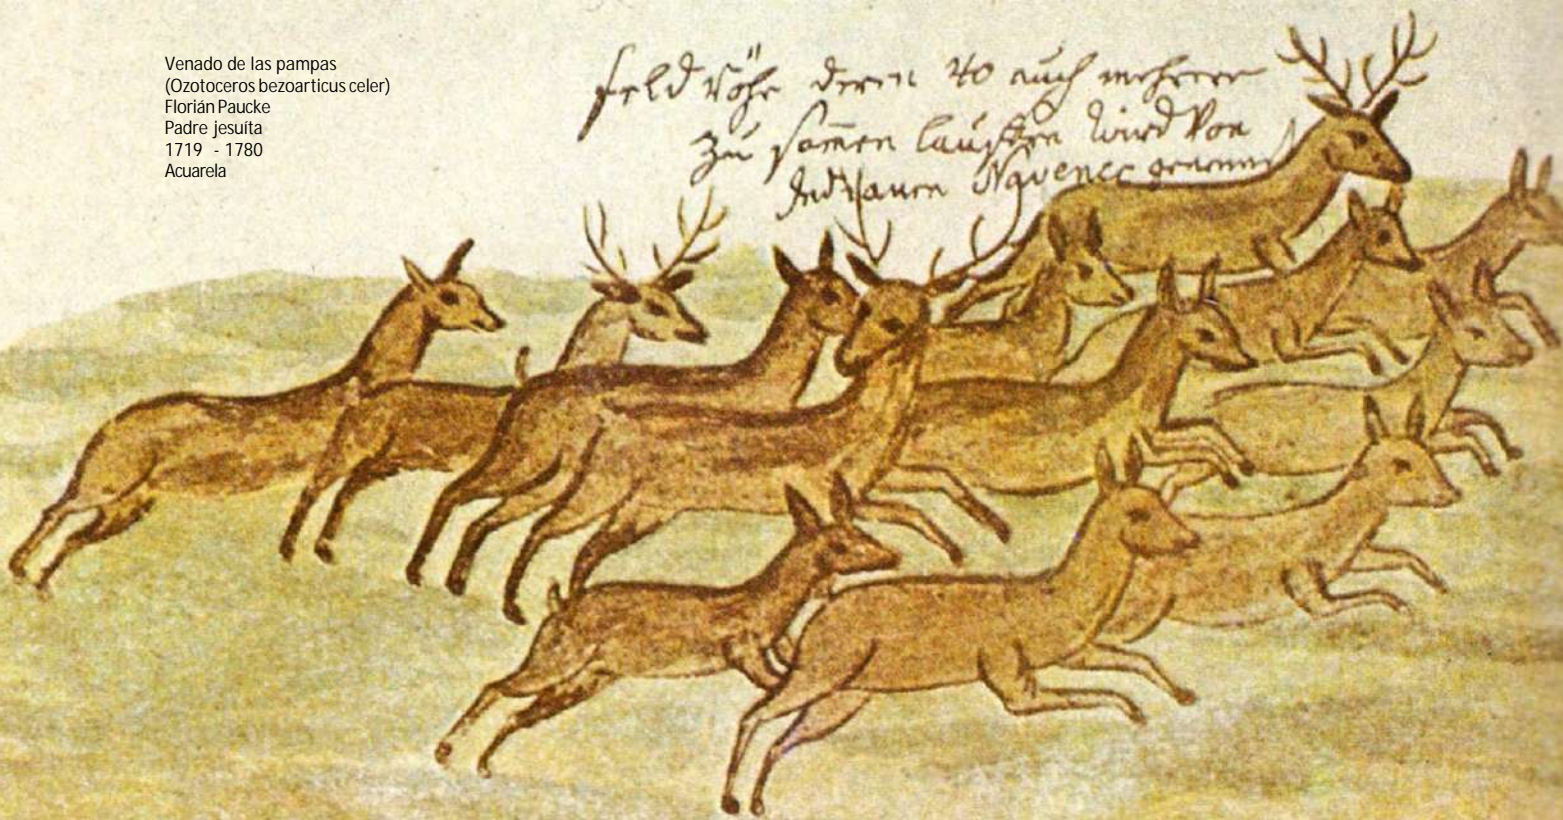 Venado de las pampas
(Ozotoceros bezoarticus celer)
Florián Paucke
Padre jesuíta
1719 - 1780
Acuarela
feld Röhe deren 40 auch mehrere
zu samen lauffen wird von
Indianern